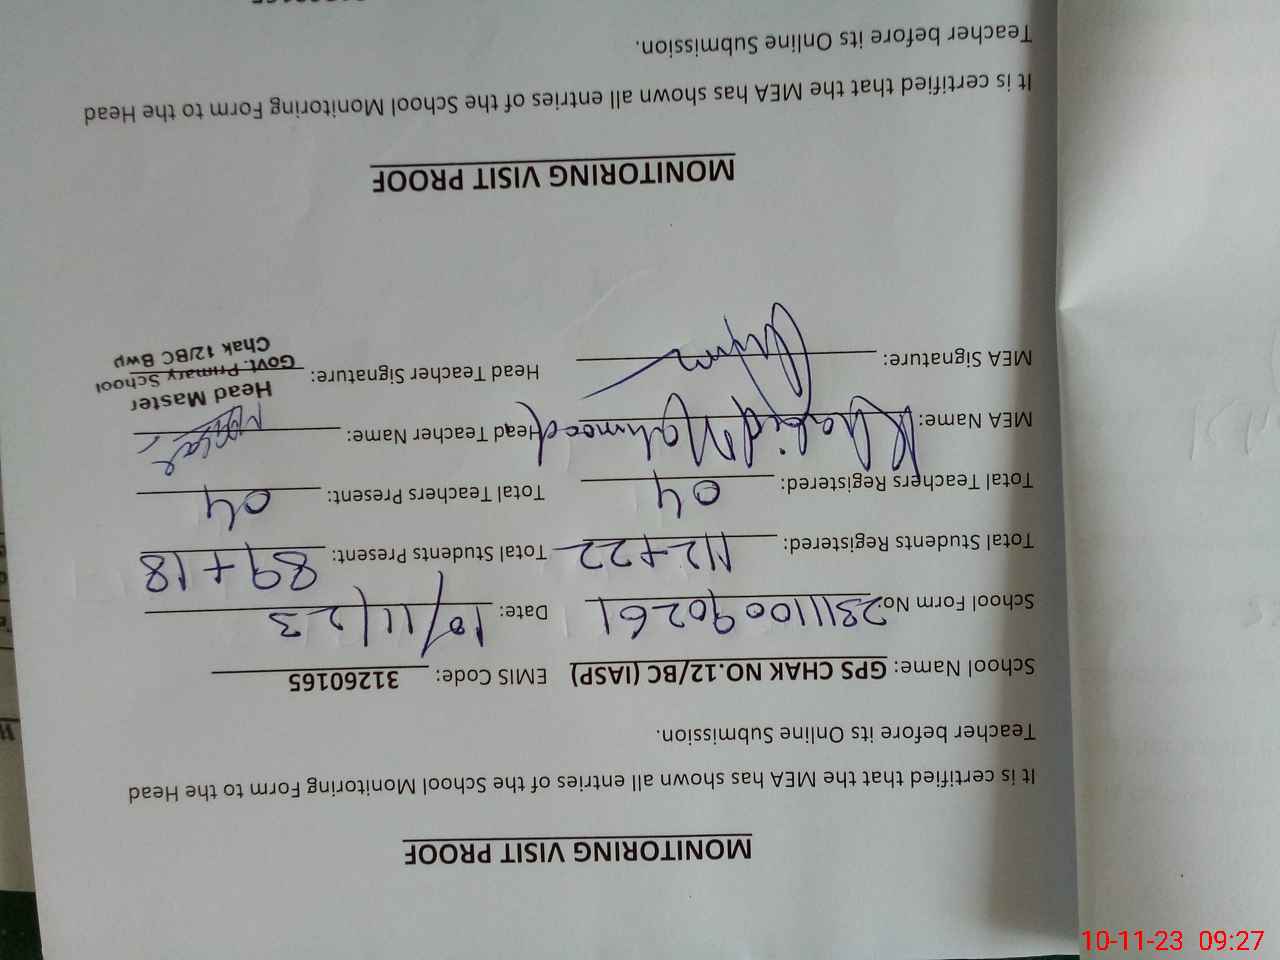 MONITORING VISIT PROOF
It is certified that the MEA has shown all entries of the School Monitoring Form to the Head
Teacher before its Online Submission.
School Name: GPS CHAK NO.12/BC (IASP) EMIS Code: 31260165
School Form No: 231110090261 Date: 10/11/23
Total Students Registered: 112+22 Total Students Present: 89+18
Total Teachers Registered: 04 Total Teachers Present: 04
MEA Name: Khalid Mahmood Head Teacher Name:
MEA Signature: Head Teacher Signature:
Head Master
Govt. Primary School
Chak 12/BC Bwp
MONITORING VISIT PROOF
It is certified that the MEA has shown all entries of the School Monitoring Form to the Head
Teacher before its Online Submission.
10-11-23 09:27